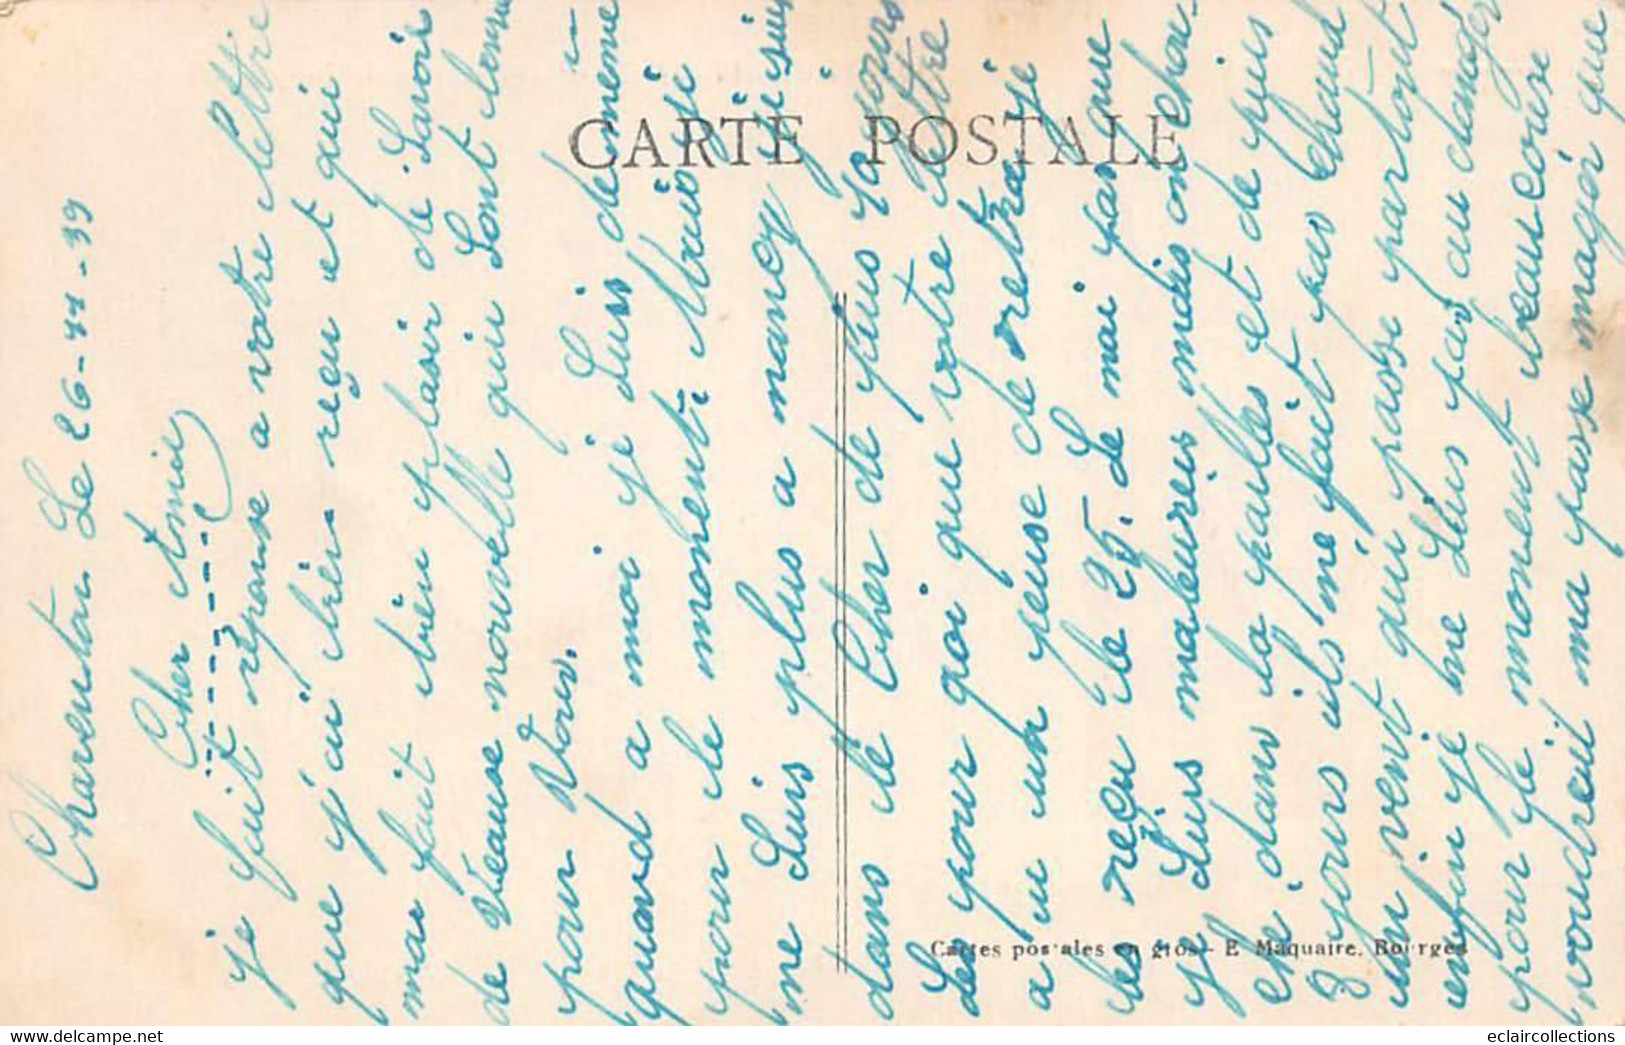 CARTE POSTALE
Charenton Le 26-11-39
Cher Amie
je fait réponse a votre lettre
que j'ai très reçu et qui
mas fait bien plasir de Savoir
de Véause nouvelle qui Sont bonne
pour Vous.
quand a moi je Suis de même
pour le moment. Mauis je
ne Suis plus a nancy je suis
dans le Cher de puis 40 jours
Les pour qoi que votre lettre
a u un peuse de retraje
les reçu le 25. Le mai pas que
je Suis maleurées mais on chou-
ché dans la pailles et de puis
8 jours ils ne fait pas chaud
un vent qui passe partout
enfin je ne Suis pas au danger
pour le moment beaucouse
voudreut ma passe mager que
Cartes postales en gros - E Maquaire. Bourges
eclaircollections